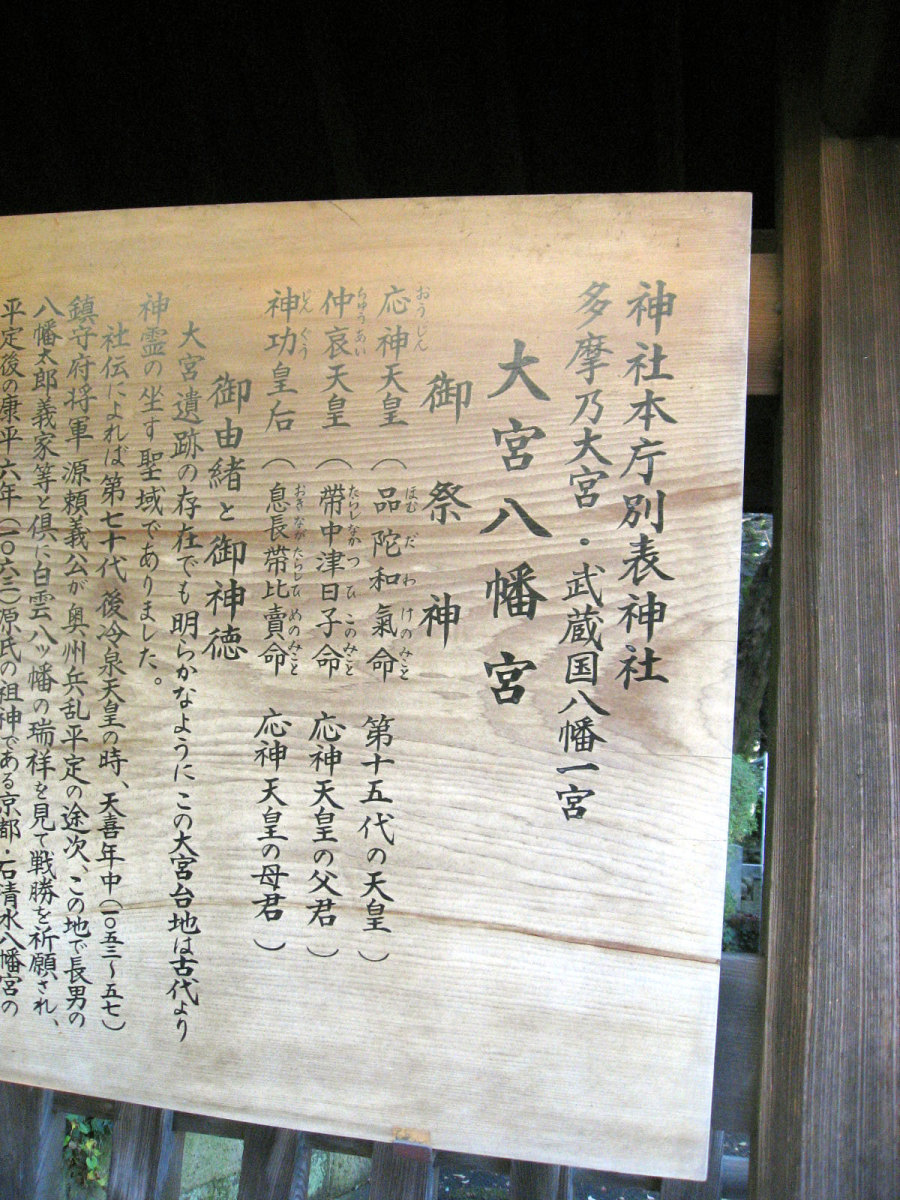 神社本庁別表神社
多摩乃大宮・武蔵国八幡一宮
大宮八幡宮
御祭神
応神天皇（品陀和氣命　第十五代の天皇）
おうじん　ほむだわけのみこと
仲哀天皇（帶中津日子命　応神天皇の父君）
ちゅうあい　たらしなかつひこのみこと
神功皇后（息長帶比賣命　応神天皇の母君）
じんぐう　おきながたらしひめのみこと
御由緒と御神徳
大宮遺跡の存在でも明らかなようにこの大宮台地は古代より
神霊の坐す聖域でありました。
社伝によれば第七十代後冷泉天皇の時、天喜年中（一〇五三～五七）
鎮守府将軍源頼義公が奥州兵乱平定の途次、この地で長男の
八幡太郎義家等と倶に白雲八ッ幡の瑞祥を見て戦勝を祈願され、
平定後の康平六年（一〇六三）源氏の祖神である京都・石清水八幡宮の